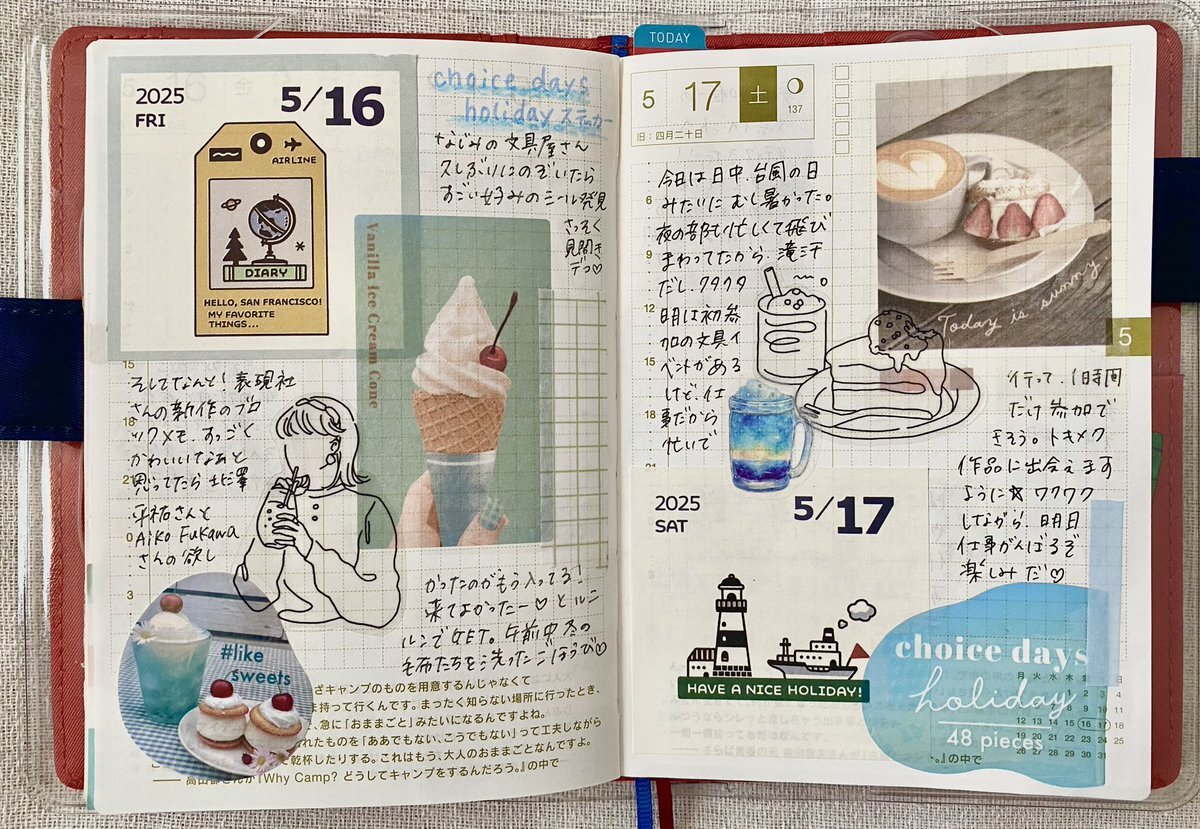 2025
FRI
5/16
AIRLINE
DIARY
HELLO, SAN FRANCISCO!
MY FAVORITE
THINGS...
choice days
holiday ステッカー
なじみの文具屋さん
久しぶりにのぞいたら
すごい好みのシール発見
さっそく
見開き
デコ♡
Vanilla Ice Cream Cone
15
18
21
0
3
そしてなんと!表現社
さんの新作のブロ
ックメモ、すっごく
かわいいなぁと
思ってたら北澤
平祐さんと
Aiko Fukawa
さんの欲し
かったのがもう入ってる!
来てよかったー♡とルン
ルンでGET。午前中冬の
毛布たちを洗ったごほうび♡
#like
sweets
ざキャンプのものを用意するんじゃなくて
持って行くんです。まったく知らない場所に行ったとき、
、急に「おままごと」みたいになるんですよね。
れたものを「ああでもない、こうでもない」って工夫しながら
で乾杯したりする。これはもう、大人のおままごとなんですよ。
『Why Camp? どうしてキャンプをするんだろう。』の中で
TODAY
5 17 土
137
旧:四月二十日
6
9
12
15
18
21
今日は日中、台風の日
みたいにむし暑かった。
夜の部も忙しくて飛び
まわってたから、滝汗
だし、クタクタ
明日は初参
加の文具イ
ベントがある
けど、仕
事だから
忙いで
Today is sunny.
5
行って、1時間
だけ参加で
きそう。トキメク
作品に出会えます
ように☆ワクワク
しながら、明日
仕事がんばるぞ
楽しみだ♡
2025
SAT
5/17
HAVE A NICE HOLIDAY!
choice days
holiday
48 pieces
月 火 水 木 金
4
12 13 14 15 16 17 18
19 20 21 22 23 24 25
26 27 28 29 30 31
の中で